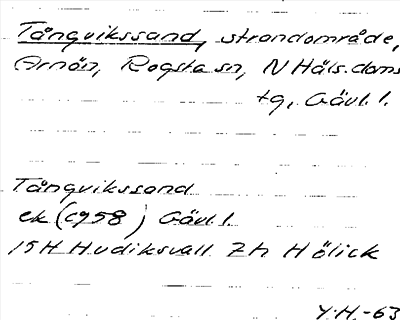 Tångvikssand, strandområde,
Arnön, Rogsta sn, N Häls. doms
tg, Gävl. l.
Tångvikssand
ek (1958) Gävl. l.
15H Hudiksvall 2h Hölick
Y.H.-63